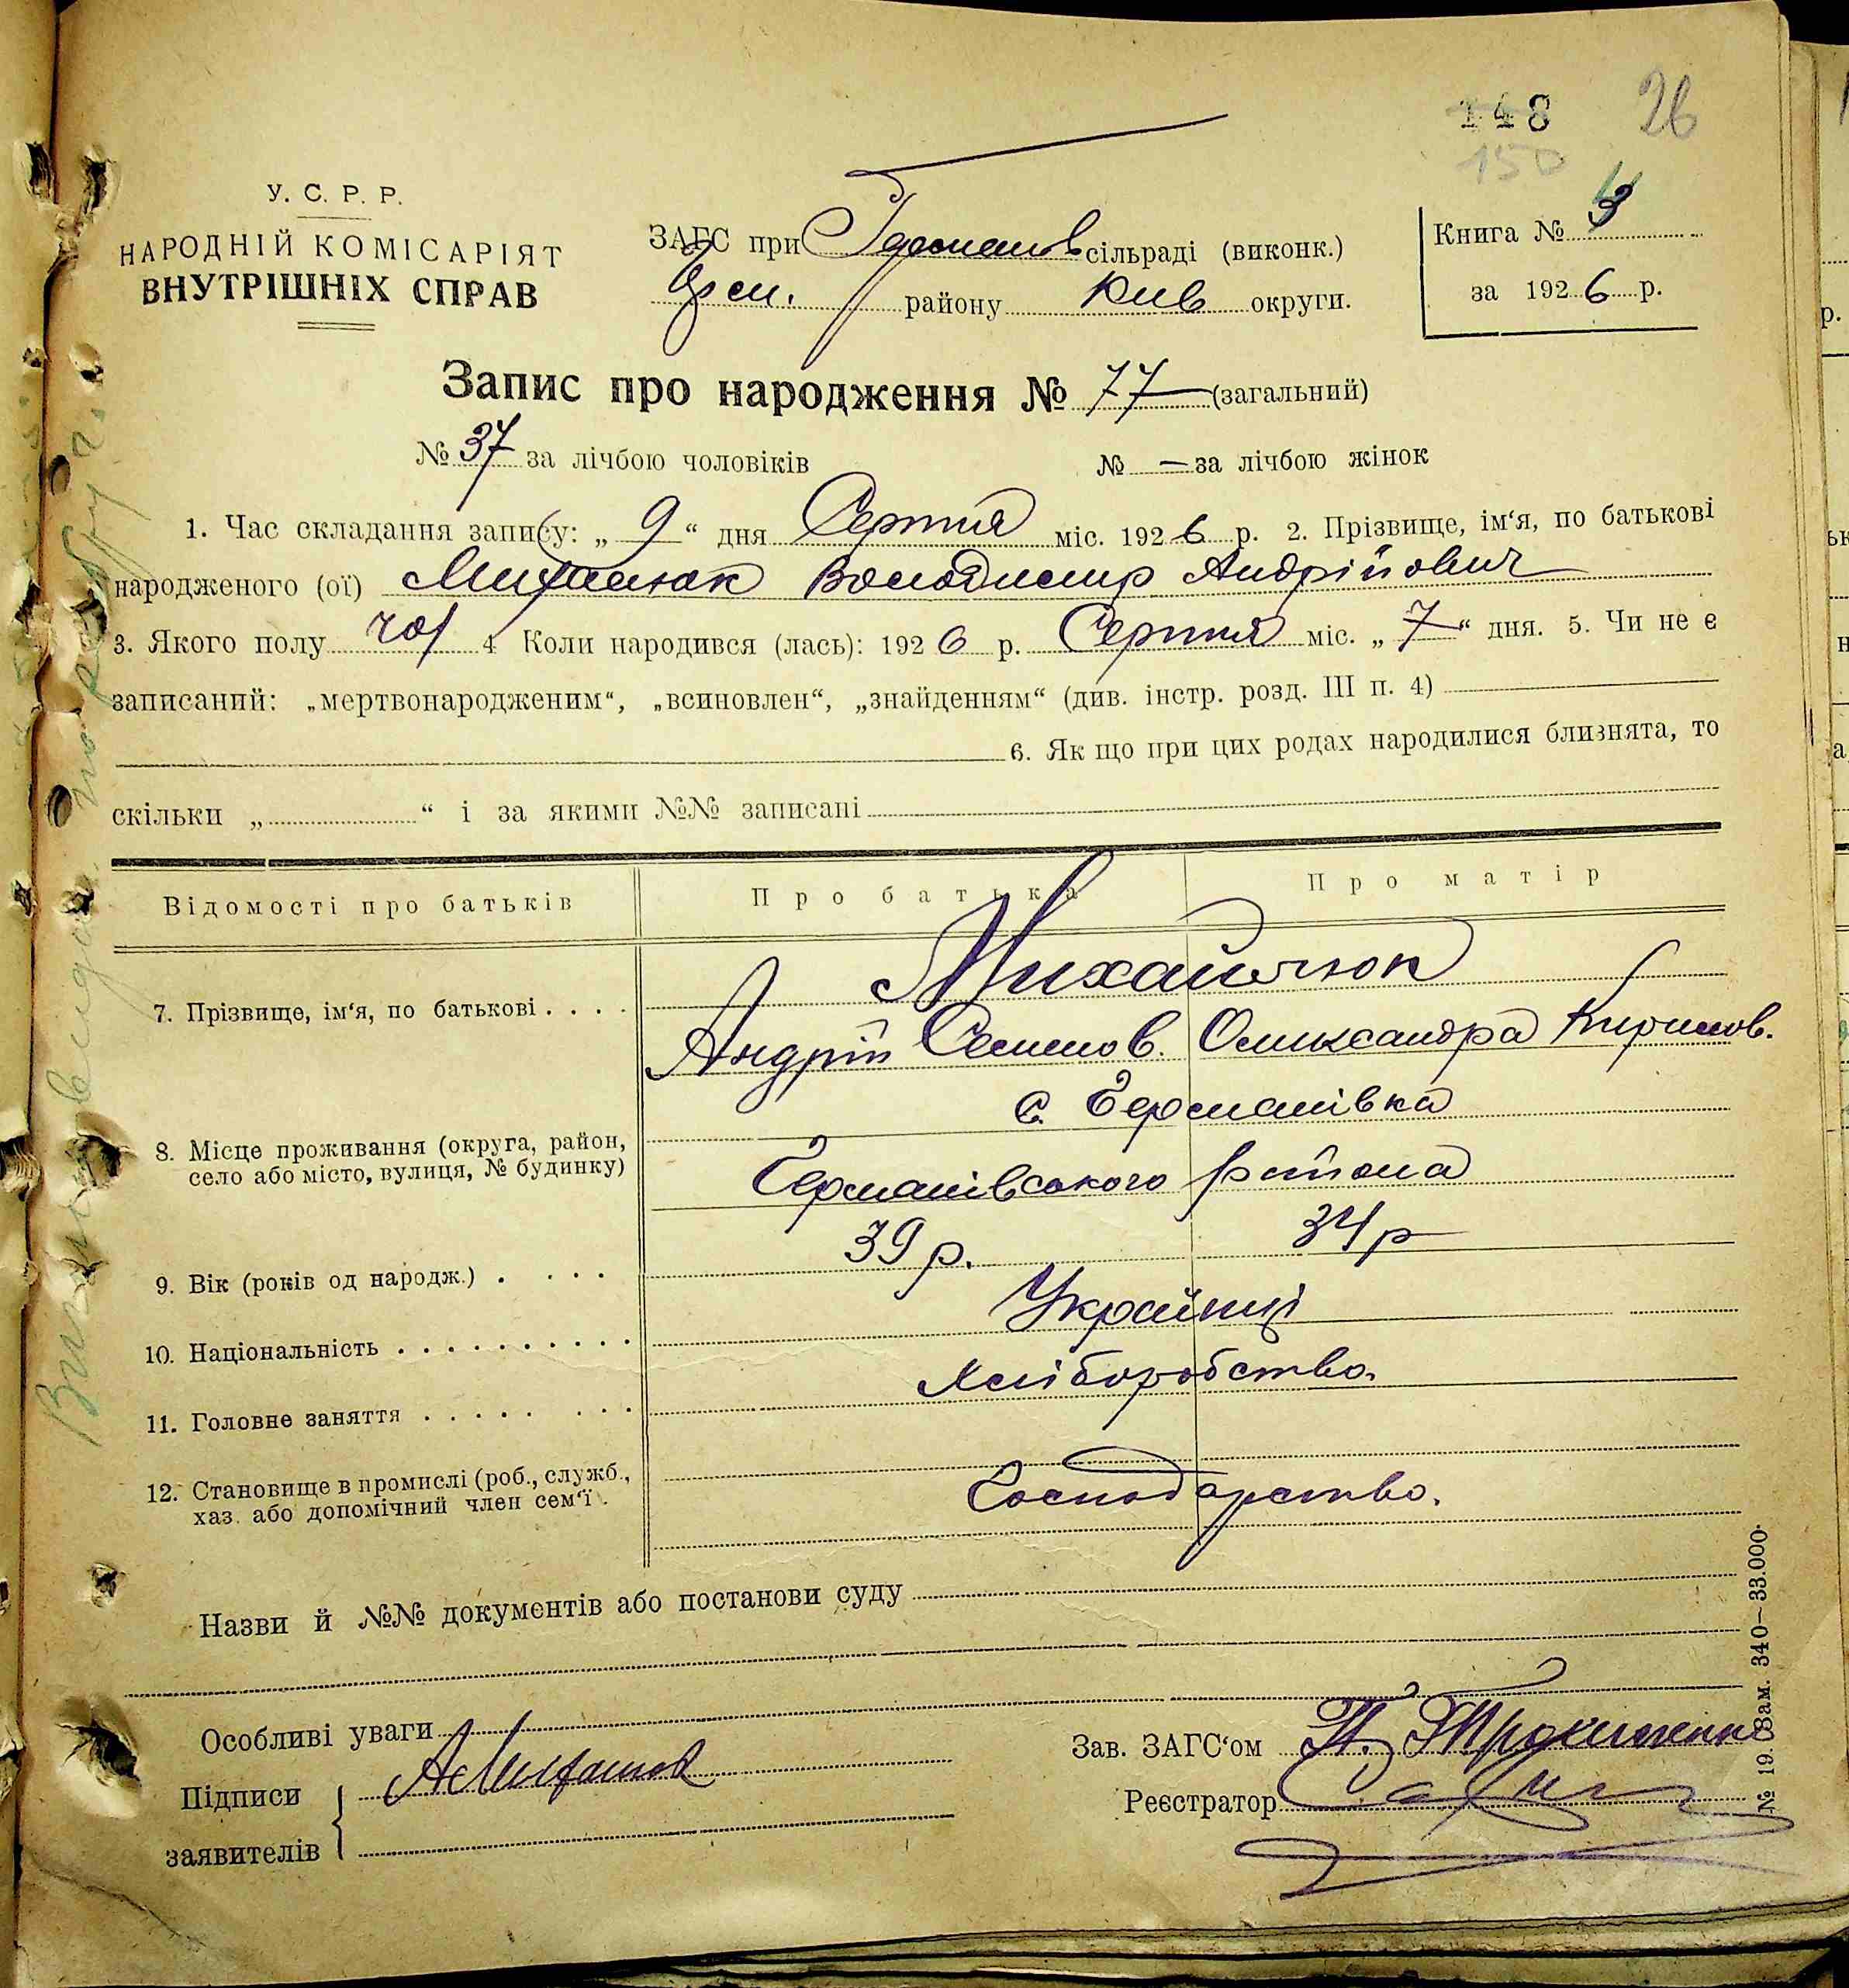 148 26
150
У. С. Р. Р.
НАРОДНІЙ КОМІСАРІЯТ
ВНУТРІШНІХ СПРАВ
ЗАГС при Германов сільраді (виконк.)
району Київ округи.
Книга № 3
за 1926 р.
Запис про народження № 77 (загальний)
№ 37 за лічбою чоловіків № — за лічбою жінок
1. Час складання запису: „ 9 “ дня Серпня міс. 1926 р. 2. Прізвище, ім‘я, по батькові
народженого (ої) Володимир Андрійович
3. Якого полу чол 4 Коли народився (лась): 1926 р. Серпня міс. „ 7 “ дня. 5. Чи не є
записаний: „мертвонародженим“, „всиновлен“, „знайденням“ (див. інстр. розд. III п. 4)
6. Як що при цих родах народилися близнята, то
скільки „ “ і за якими №№ записані
Відомості про батьків Про батька Про матір
Михайлюк
7. Прізвище, ім‘я, по батькові . . . . Андрій Семенов. Олександра Кирилов.
с. Германівка
8. Місце проживання (округа, район,
село або місто, вулиця, № будинку)
Германівського району
9. Вік (років од народж.) . . . . 39 р. 34 р
10. Національність . . . . . . . . . . Українці
11. Головне заняття . . . . . . . . Хліборобство.
12. Становище в промислі (роб., служб.,
хаз. або допомічний член сем‘ї .
Господарство.
Назви й №№ документів або постанови суду
Особливі уваги
Підписи
заявителів
Зав. ЗАГС‘ом
Реєстратор
№ 19. Зам. 340—33.000.